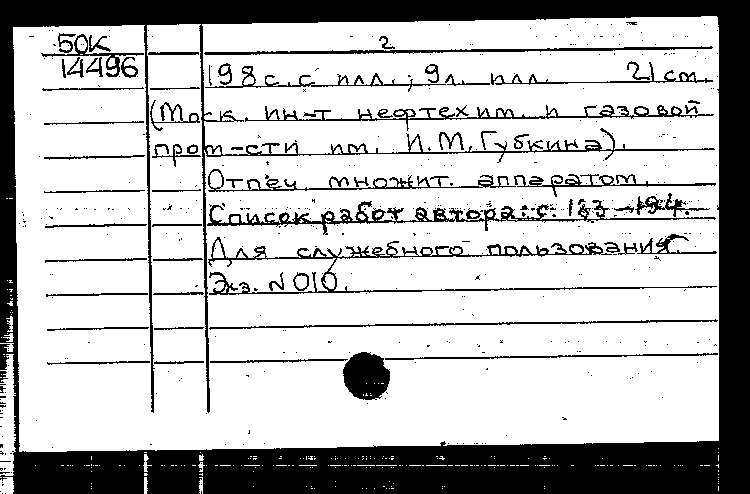 50К 2
14496 198 с. с илл.; 9 л. илл. 21 см.
(Моск. ин-т нефтехим. и газовой
пром-сти им. И.М. Губкина).
Отпеч. множит. аппаратом.
Список работ автора: с.
Для служебного пользования.
Экз. N 010.